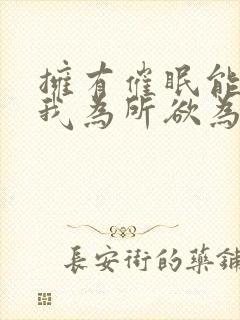 擁有催眠能
我為所欲為
長安街的藥鋪